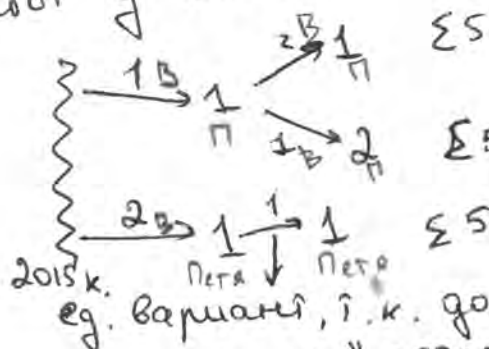 1В 1 П 2В 1 П Σ5
1В 2 П Σ5
2В 1 Петя 1 1 Петя Σ5
2015 к.
ед. вариант, т.к. до